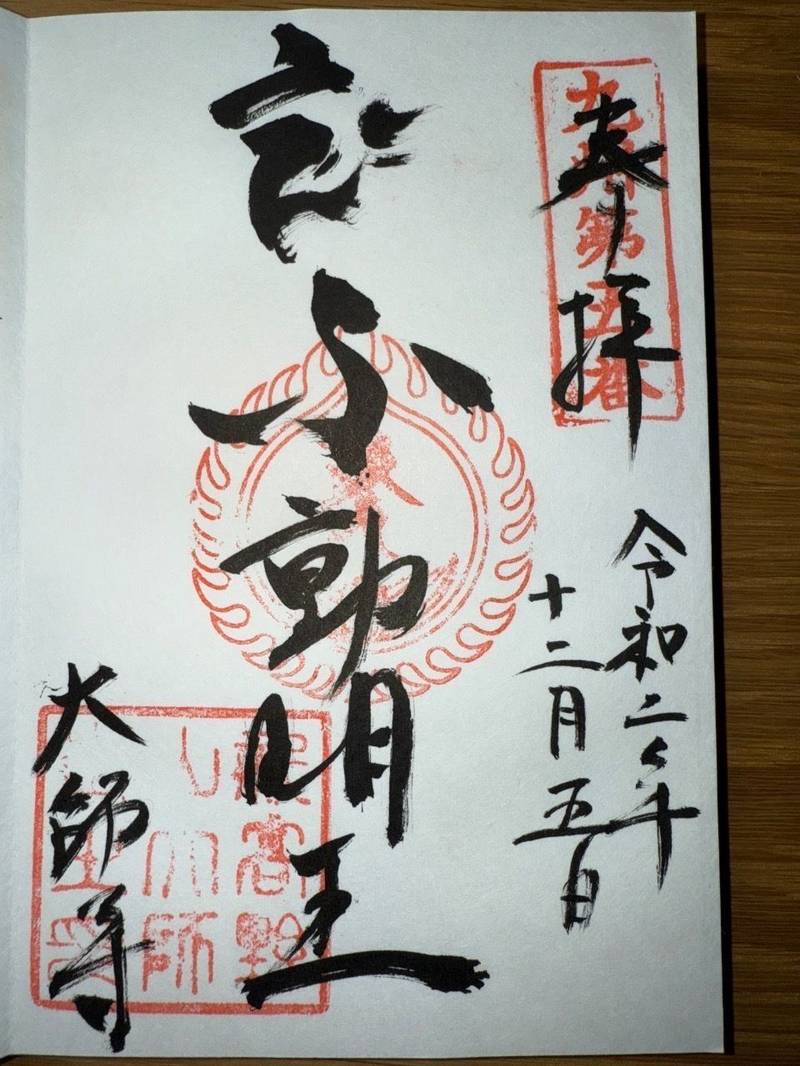 九州第五番
奉拝
令和二年
十二月五日
不動明王
大師寺